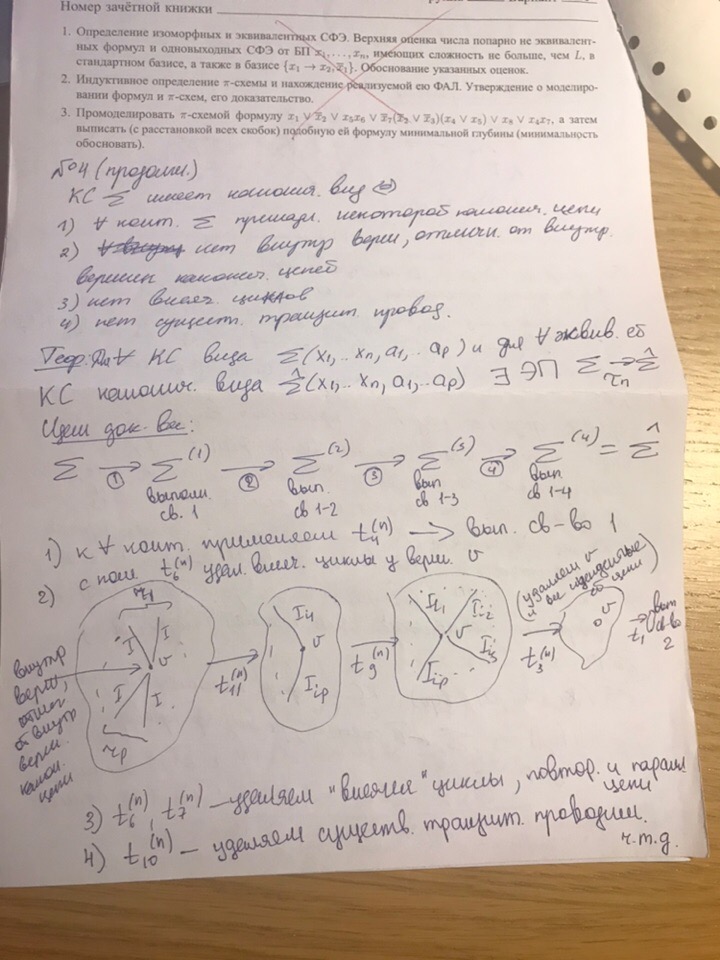 Номер зачётной книжки
1. Определение изоморфных и эквивалентных СФЭ. Верхняя оценка числа попарно не эквивалент-
ных формул и одновыходных СФЭ от БП x₁, . . . , xₙ, имеющих сложность не больше, чем L, в
стандартном базисе, а также в базисе {x₁ → x₂, x̅₁}. Обоснование указанных оценок.
2. Индуктивное определение π-схемы и нахождение реализуемой ею ФАЛ. Утверждение о моделиро-
вании формул и π-схем, его доказательство.
3. Промоделировать π-схемой формулу x₁ ∨ x̅₂ ∨ x₅x₆ ∨ x̅₇(x̅₂ ∨ x̅₃)(x₄ ∨ x₅) ∨ x₈ ∨ x₄x₇, а затем
выписать (с расстановкой всех скобок) подобную ей формулу минимальной глубины (минимальность
обосновать).
№4 (продолж.)
КС Σ имеет канонич. вид
1) ∀ конт. Σ принадл. некоторой канонич. цепи
2) нет внутр верш, отличн. от внутр.
вершин канонич. цепей
3) нет висяч. циклов
4) нет существ. транзит. провод.
Теор: Для ∀ КС вида Σ(x₁,..xₙ,a₁,..aₚ) и для ∀ эквив. ей
КС канонич. вида Σ̂(x₁,..xₙ,a₁,..aₚ) ∃ ЭП Σ → Σ̂
τₙ
Идеи док-ва:
Σ → Σ⁽¹⁾ → Σ⁽²⁾ → Σ⁽³⁾ → Σ⁽⁴⁾ = Σ̂
① ② ③ ④
выполн. вып. вып. вып.
св. 1 св 1-2 св 1-3 св 1-4
1) к ∀ конт. применяем t₄⁽ⁿ⁾ → вып. св-во 1
2) с пом. t₆⁽ⁿ⁾ удал. висяч. циклы у верш. v
внутр
верш,
отлич
от внутр
верш.
канон.
цепи
r₁ I I v I I rₚ
t₁₁⁽ⁿ⁾
I₁₁ v Iᵢₚ
t₉⁽ⁿ⁾
Iᵢ₁ Iᵢ₂ v Iᵢ₃ Iᵢₚ
(удаляем v
и все инцидентные
ей цепи)
t₃⁽ⁿ⁾
v
t₁ вып
св-во
2
3) t₆⁽ⁿ⁾, t₇⁽ⁿ⁾ — удаляем "висячие" циклы, повтор. и паралл.
цепи
4) t₁₀⁽ⁿ⁾ — удаляем существ. транзит. проводим.
ч.т.д.